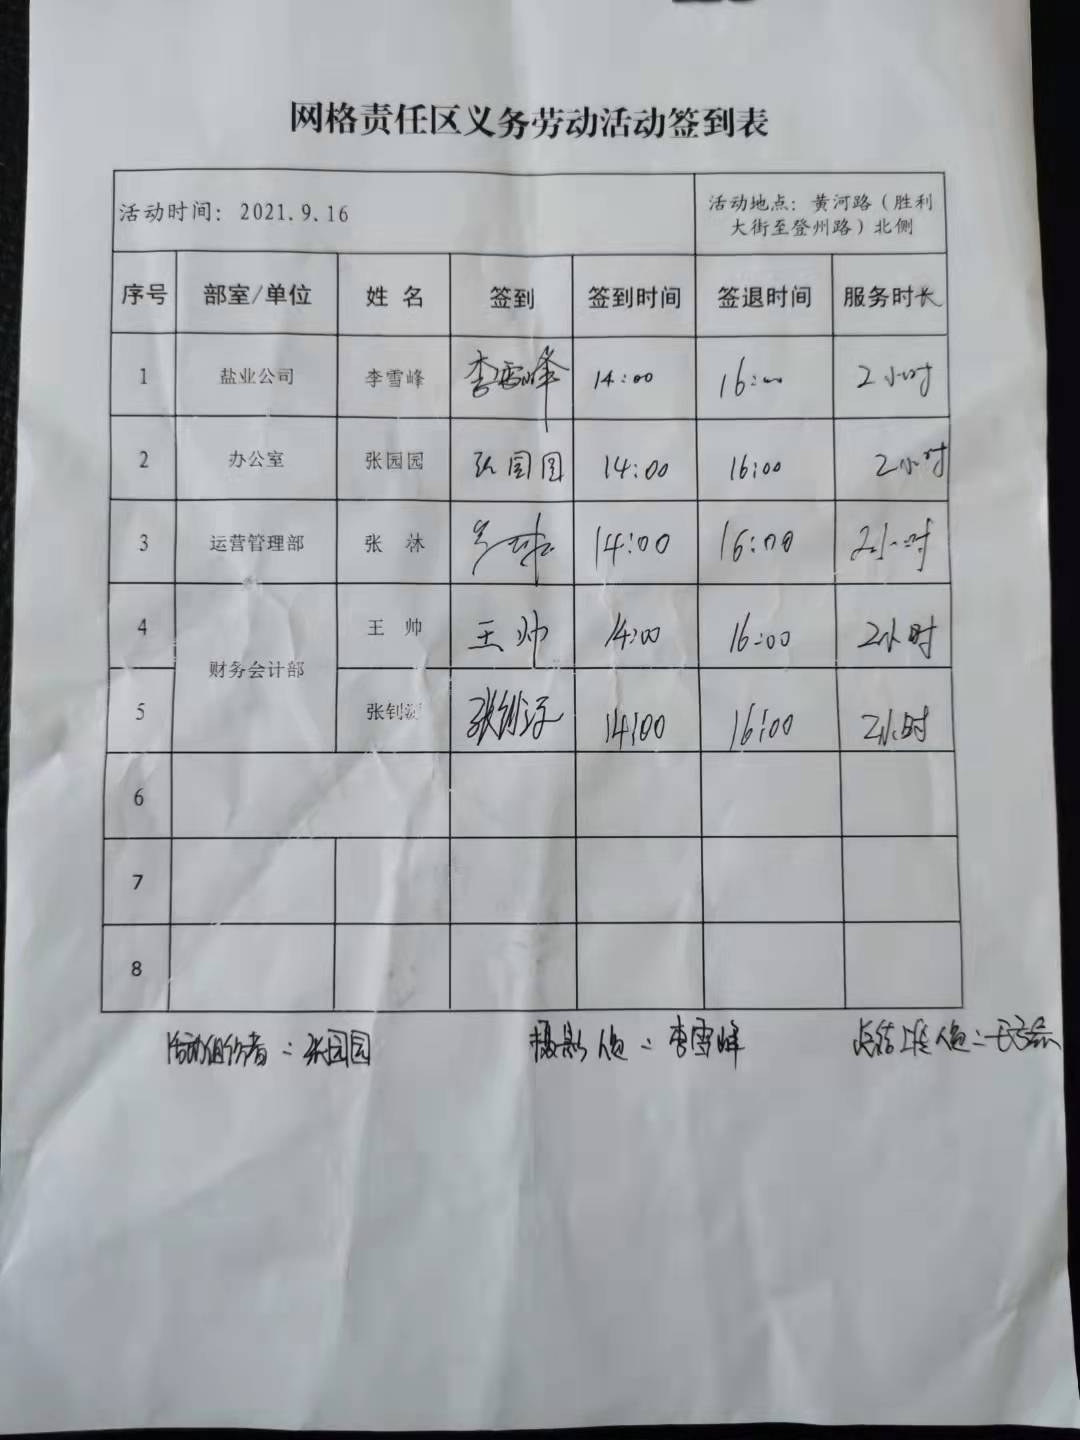 网格责任区义务劳动活动签到表
活动时间: 2021.9.16
活动地点: 黄河路(胜利
大街至登州路)北侧
序号 部室/单位 姓 名 签到 签到时间 签退时间 服务时长
1 盐业公司 李雪峰 李雪峰 14:00 16:00 2小时
2 办公室 张园园 张园园 14:00 16:00 2小时
3 运营管理部 张 林 14:00 16:00 2小时
4 财务会计部 王 帅 王帅 14:00 16:00 2小时
5 张钊 张钊 14:00 16:00 2小时
6
7
8
活动组织者: 张园园 摄影人员: 李雪峰 总结上传人员: